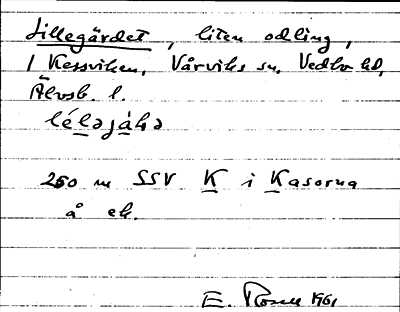 Lillegärdet, liten odling,
1 Kessviken, Vårviks sn, Vedbo hd,
Älvsb. l.
léləjáḷə
250 m SSV K i Kasorna
å ek.
E. Rosell 1961